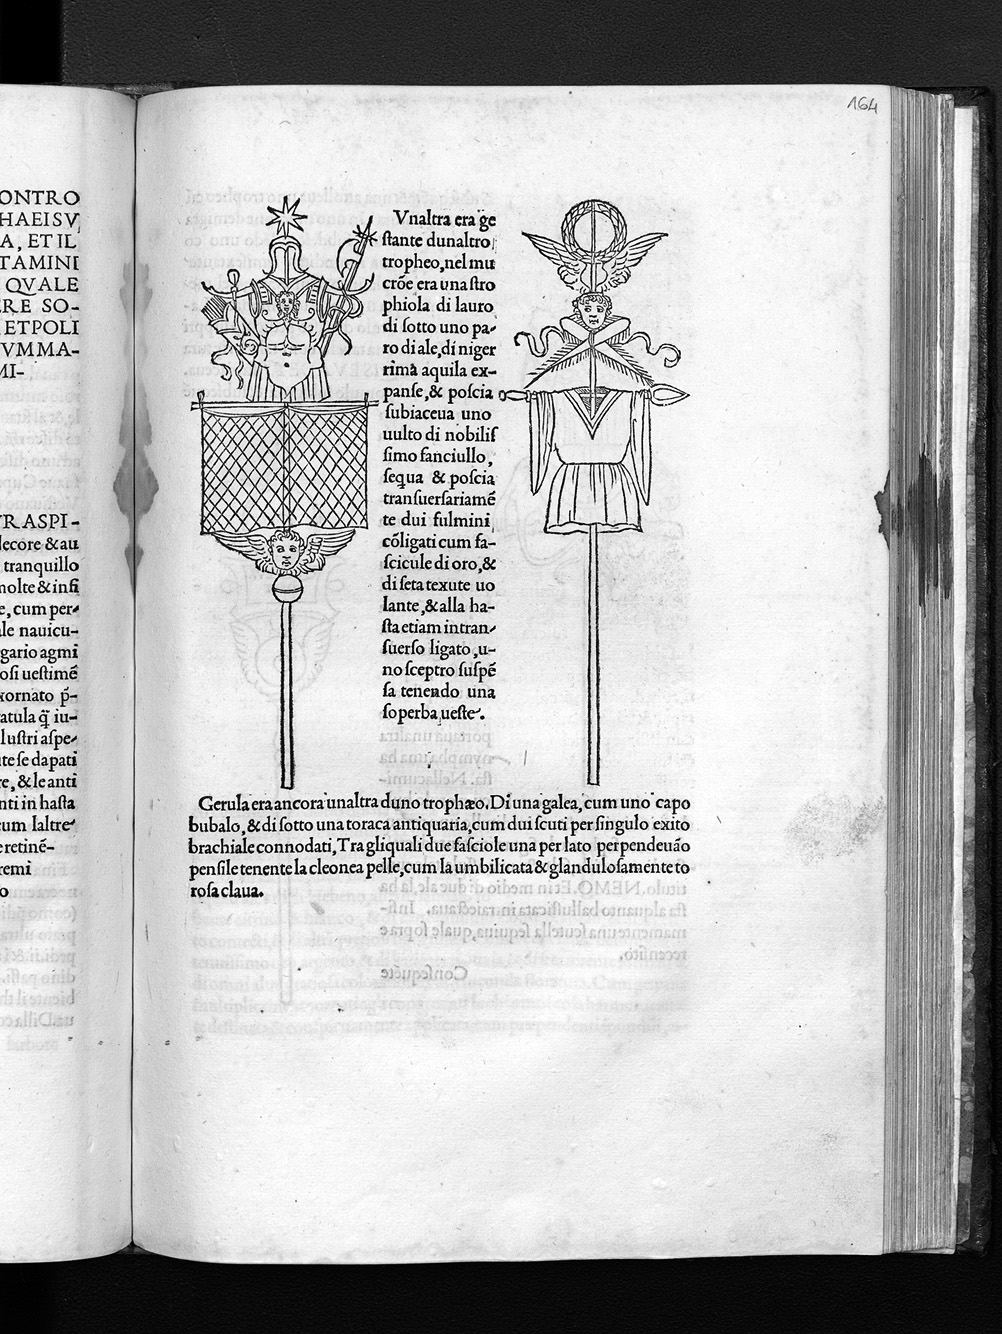 164
ONTRO
HAEISV
A, ET IL
TAMINE
QVALE
ERE SO-
ETPOLI
VMMA-
MI-
TRASPI-
decore & au
tranquillo
molte & infi
e, cum per-
ale nauicu-
gario agmi
osi uestimē
xornato p̄-
atula q̄ iu-
lustri aspe-
te se dapati
re, & le anti
nti in hasta
cum laltre
e retinē-
remi
o
Vnaltra era ge
stante dunaltro
tropheo, nel mu
crōe era una stro
phiola di lauro
di sotto uno pa-
ro di ale, di niger
rima aquila ex-
panse, & poscia
subiaceua uno
uulto di nobilis
simo fanciullo,
sequa & poscia
transuersariamē
te dui fulmini,
cōligati cum fa-
scicule di oro, &
di seta texute uo
lante, & alla ha-
sta etiam intran-
suerso ligato, u-
no sceptro suspē
sa tenendo una
soperba ueste.
Gerula era ancora unaltra duno trophæo. Di una galea, cum uno capo
bubalo, & di sotto una toraca antiquaria, cum dui scuti per singulo exito
brachiale connodati, Tra gli quali due fasciole una per lato perpendeuāo
pensile tenente la cleonea pelle, cum la umbilicata & glandulosamente to
rosa claua.